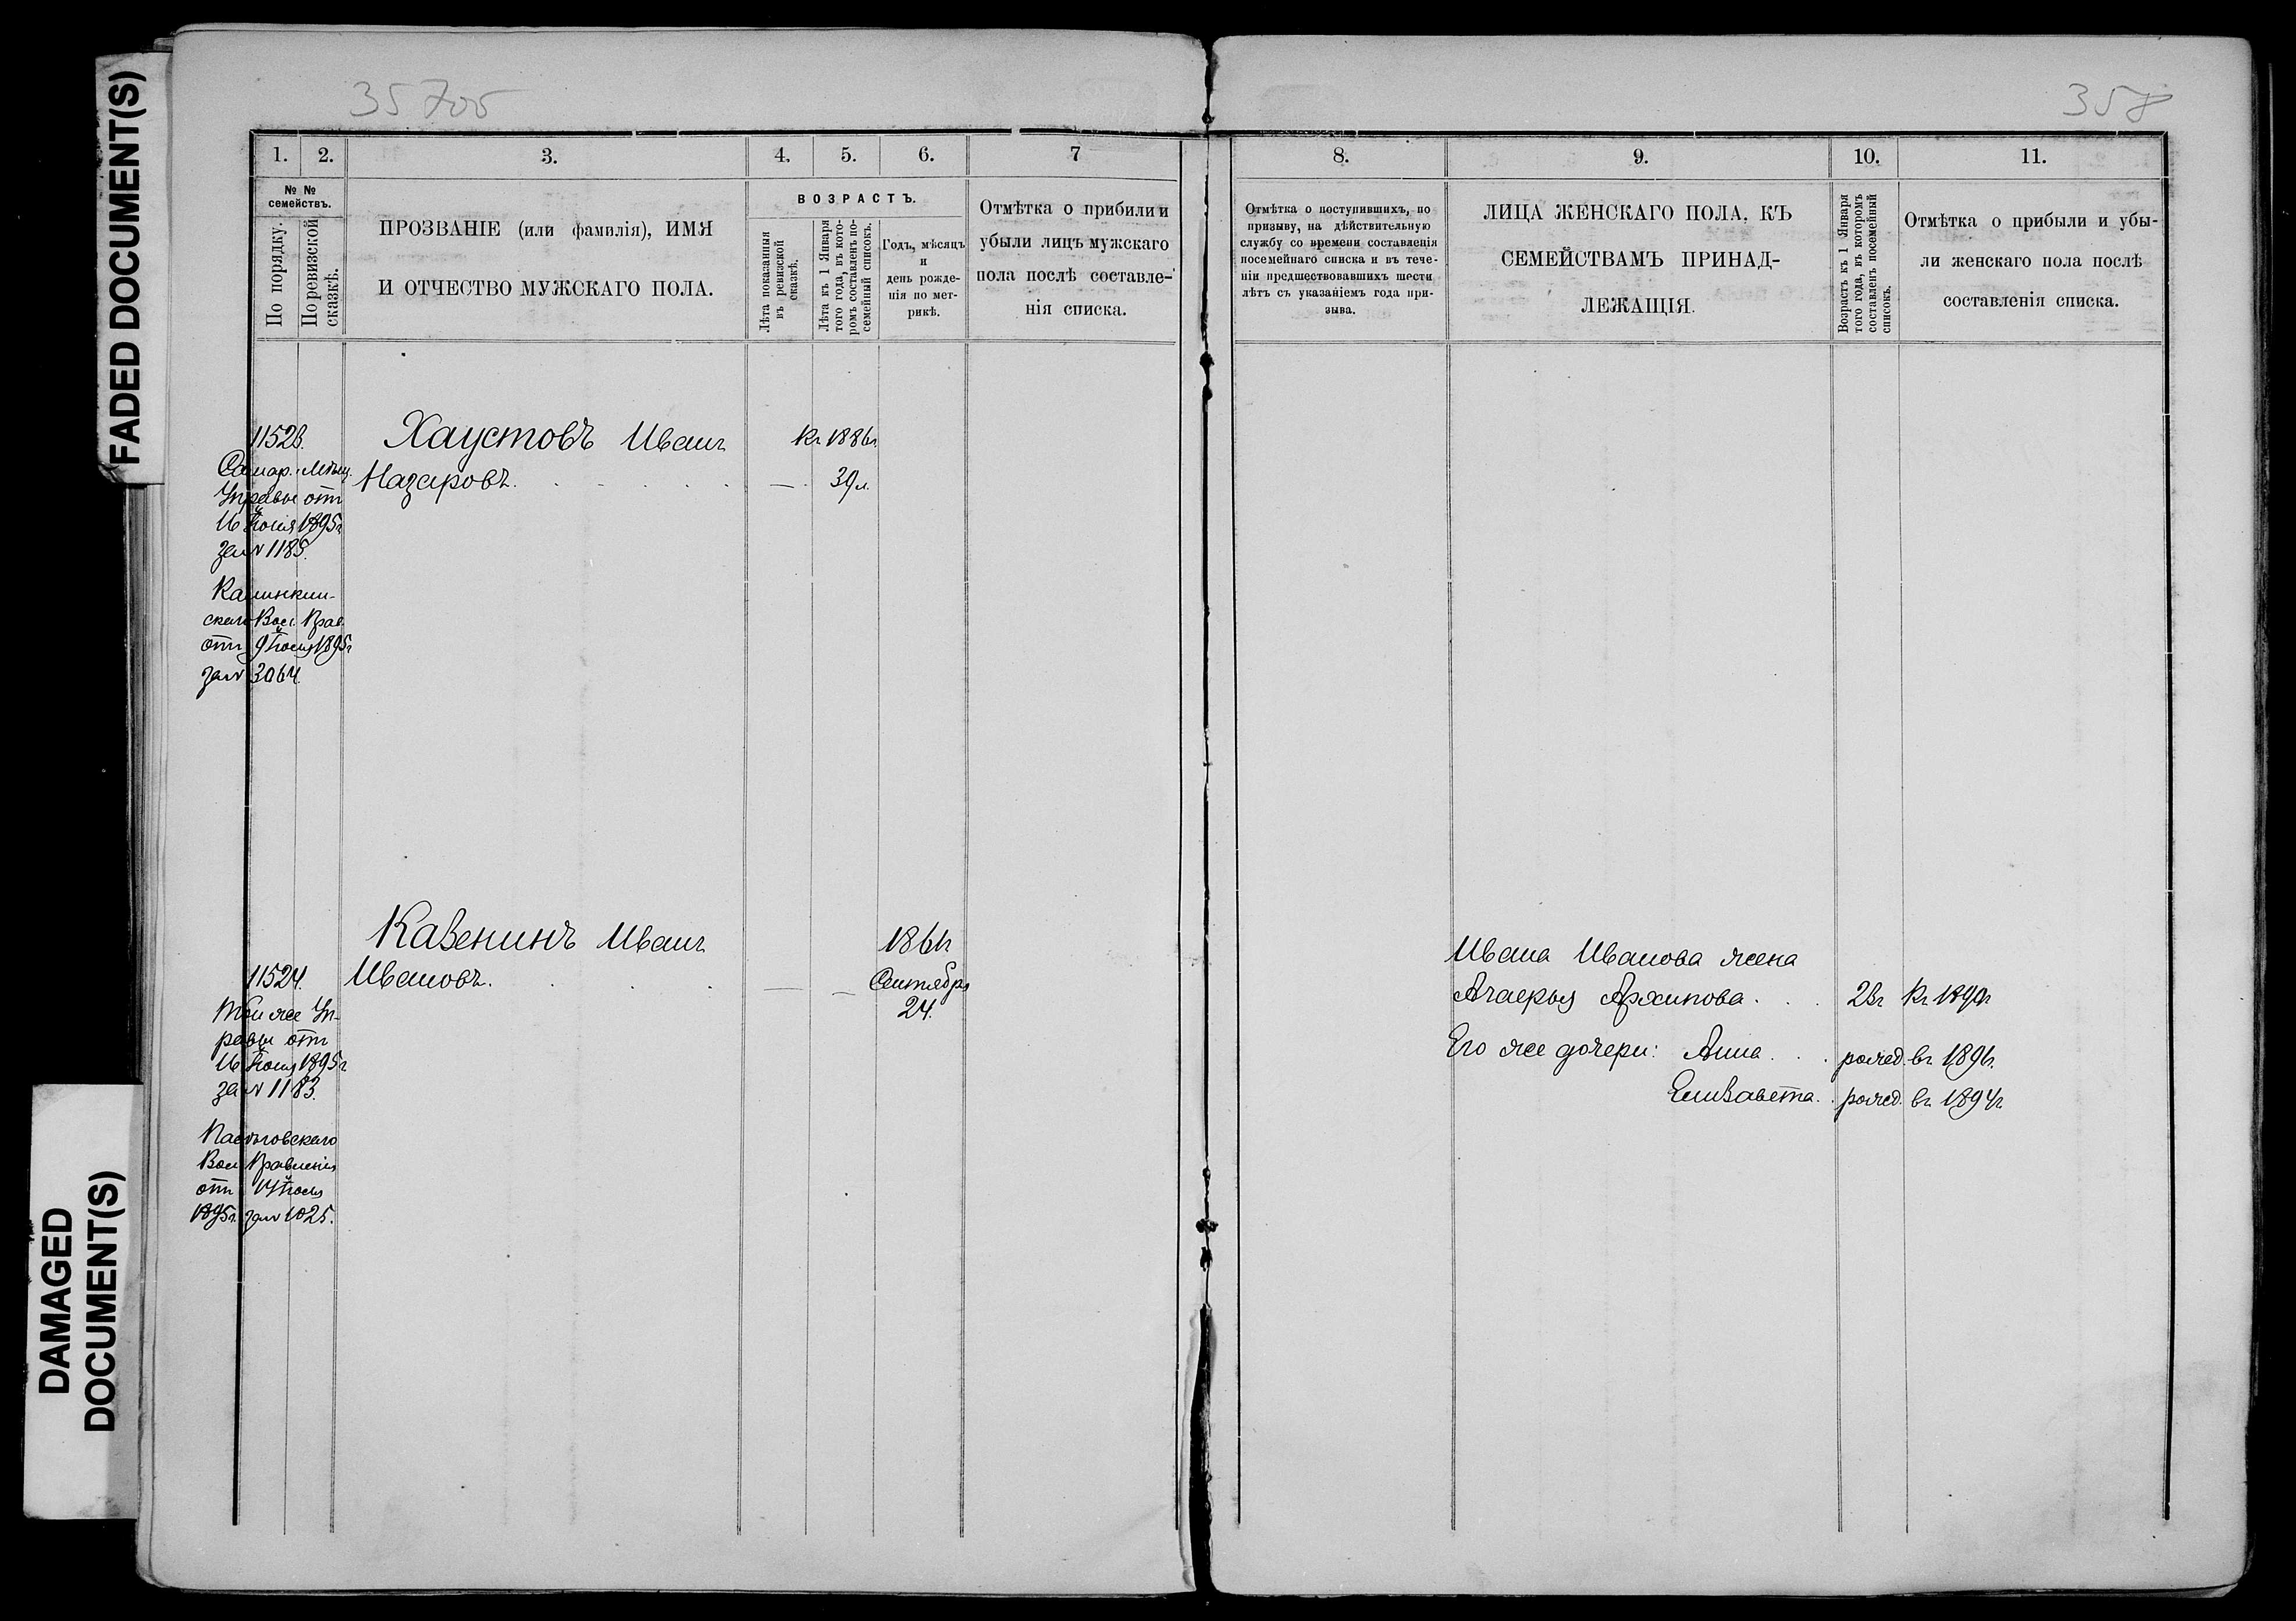 FADED DOCUMENT(S)
DAMAGED
DOCUMENT(S)
358
1. 2. 3. 4. 5. 6. 7
№ №
семействъ.
По порядку.
По ревизской
сказкѣ.
ПРОЗВАНІЕ (или фамилія), ИМЯ
И ОТЧЕСТВО МУЖСКАГО ПОЛА.
ВОЗРАСТЪ.
Лѣта показанныя
въ ревизской
сказкѣ.
Лѣта къ 1 Января
того года, въ кото-
ромъ составленъ по-
семейный списокъ.
Годъ, мѣсяцъ
и
день рожде-
нія по мет-
рикѣ.
Отмѣтка о прибыли и
убыли лицъ мужскаго
пола послѣ составле-
нія списка.
11523.
Самар. Мѣщ.
Управы отъ
16 Іюня 1895г
за № 1185.
Калинкин-
скаго Вол. Прав.
отъ 9 Іюня 1895г
за № 3064.
Хаустовъ Иванъ
Назаровъ.
Къ 1886г.
— 39 л.
11524.
Той же Уп-
равы отъ
16 Іюня 1895г
за № 1183.
Вол Правленія
отъ 14 Іюня
1895г. за № 1025.
Кавенинъ Иванъ
Ивановъ.
— —
1861г
Сентября
24.
8. 9. 10. 11.
Отмѣтка о поступившихъ, по
призыву, на дѣйствительную
службу со времени составленія
посемейнаго списка и въ тече-
ніи предшествовавшихъ шести
лѣтъ съ указаніемъ года при-
зыва.
ЛИЦА ЖЕНСКАГО ПОЛА, КЪ
СЕМЕЙСТВАМЪ ПРИНАД-
ЛЕЖАЩІЯ.
Возрастъ къ 1 Января
того года, въ которомъ
составленъ посемейный
списокъ.
Отмѣтка о прибыли и убы-
ли женскаго пола послѣ
составленія списка.
Ивана Иванова жена
Архипова. Къ
Его же дочери: Анна. рожд. въ 1891г.
Елизавета. рожд. въ 1894г